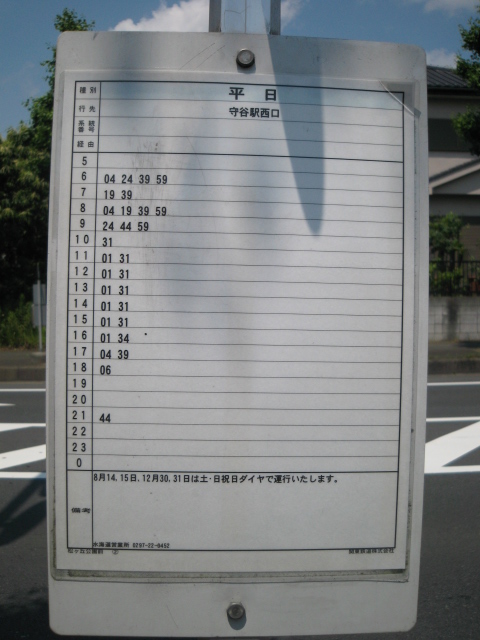 種別 平日
行先 守谷駅西口
系統番号
経由
5
6 04 24 39 59
7 19 39
8 04 19 39 59
9 24 44 59
10 31
11 01 31
12 01 31
13 01 31
14 01 31
15 01 31
16 01 34
17 04 39
18 06
19
20
21 44
22
23
0
備考 8月14,15日,12月30,31日は土・日祝日ダイヤで運行いたします。
水海道営業所 0297-22-0452
松ヶ丘公園前 ② 関東鉄道株式会社